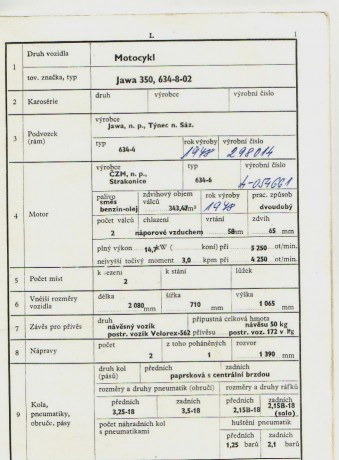 I.
1
1 Druh vozidla Motocykl
tov. značka, typ Jawa 350, 634-8-02
2 Karosérie druh výrobce výrobní číslo
3 Podvozek (rám) výrobce
Jawa, n. p., Týnec n. Sáz.
typ rok výroby výrobní číslo
634-4 298014
4 Motor výrobce typ výrobní číslo
ČZM, n. p., Strakonice 634-6
palivo zdvihový objem válců rok výroby prac. způsob
směs benzin-olej 343,47 cm³ dvoudobý
počet válců chlazení vrtání zdvih
2 náporové vzduchem 58 mm 65 mm
plný výkon kW ( koní) při 5 250 ot/min.
největší točivý moment 3,0 kpm při 4 250 ot/min.
5 Počet míst k sezení k stání lůžek
2
6 Vnější rozměry vozidla délka šířka výška
2 080 mm 710 mm 1 065 mm
7 Závěs pro přívěs druh přípustná celková hmota
návěsný vozík návěsu 50 kg
postr. vozík Velorex-562 přívěsu postr. voz. 172 kg
8 Nápravy počet z toho poháněných rozvor
2 1 1 390 mm
9 Kola, pneumatiky, obruče, pásy druh kol (pásů) předních zadních
paprsková s centrální brzdou
rozměry a druhy pneumatik (obručí) rozměry a druhy ráfků
předních zadních předních zadních
3,25-18 3,5-18 2,15B-18 2,15B-18 (solo)
počet náhradních kol s pneumatikami huštění pneumatik
předních zadních
1,25 barů 2,1 barů